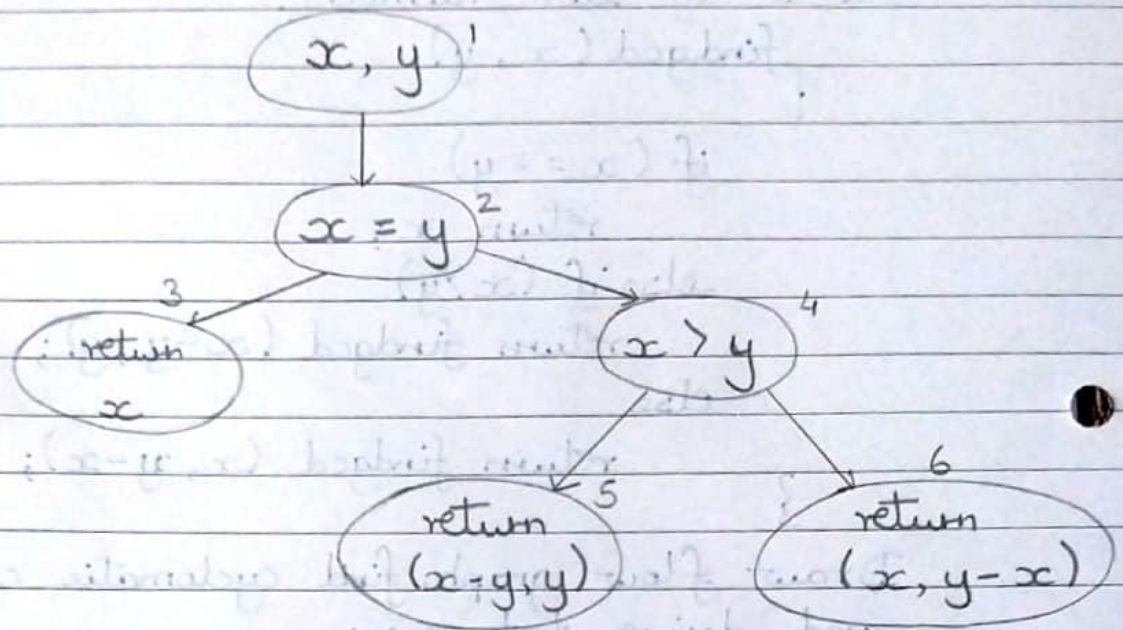 x, y 1
x = y 2
3
return
x
x > y 4
5
return
(x-y, y)
6
return
(x, y-x)